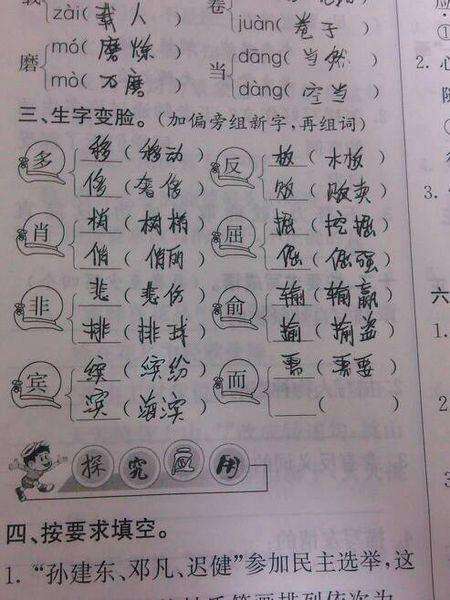 zài( 载人 ) 卷 juàn( 卷子 )
磨 mó( 磨炼 ) 当 dāng( 当然 )
mò( 石磨 ) dàng( 空当 )
三、生字变脸。(加偏旁组新字,再组词)
多 移 ( 移动 ) 反 板 ( 木板 )
侈 ( 奢侈 ) 贩 ( 贩卖 )
肖 梢 ( 树梢 ) 屈 掘 ( 挖掘 )
俏 ( 俏丽 ) 倔 ( 倔强 )
非 悲 ( 悲伤 ) 俞 输 ( 输赢 )
排 ( 排球 ) 偷 ( 偷盗 )
宾 缤 ( 缤纷 ) 而 需 ( 需要 )
滨 ( 海滨 ) ( )
探究应用
四、按要求填空。
1. “孙建东、邓凡、迟健”参加民主选举,这
2. 心
3.
六
1.
2